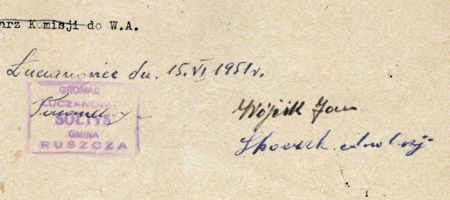 arz Komisji do W.A.
Łuczanowice dn. 15.VI 1951r.
GROMAD
LUCZANOWI
SOŁTYS
GMINA
RUSZCZA
Wójcik Jan